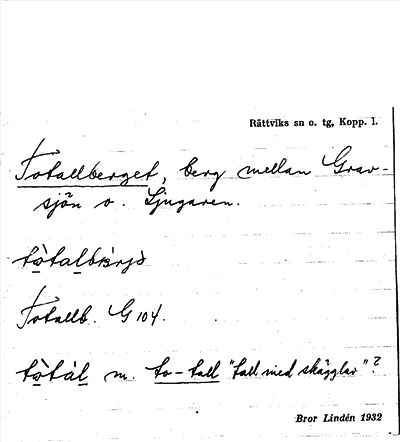 Rättviks sn o. tg, Kopp. l.
Totallberget, berg mellan Grav-
sjön o. Ljugaren.
tòtalbærjə̀
Totallb. G 104.
tòtàl m. to-tall "tall med skägglav"?
Bror Lindén 1932